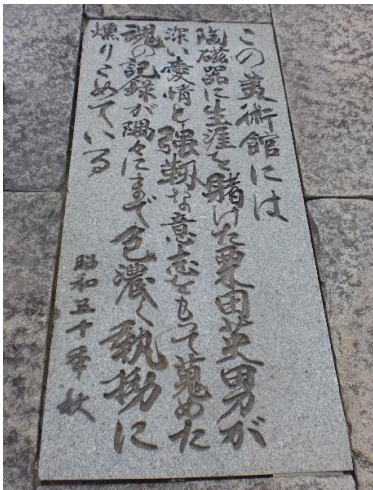 この美術館には
陶磁器に生涯を賭けた栗田英男が
深い愛情と強靭な意志をもって蒐めた
魂の記録が隅々にまで色濃く執拗に
燻りこめている
昭和五十年秋